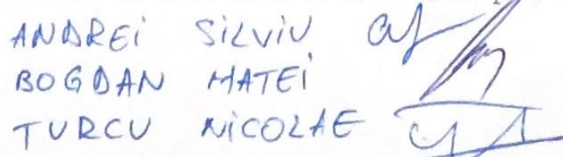 ANDREI SILVIU
BOGDAN MATEI
TURCU NICOLAE